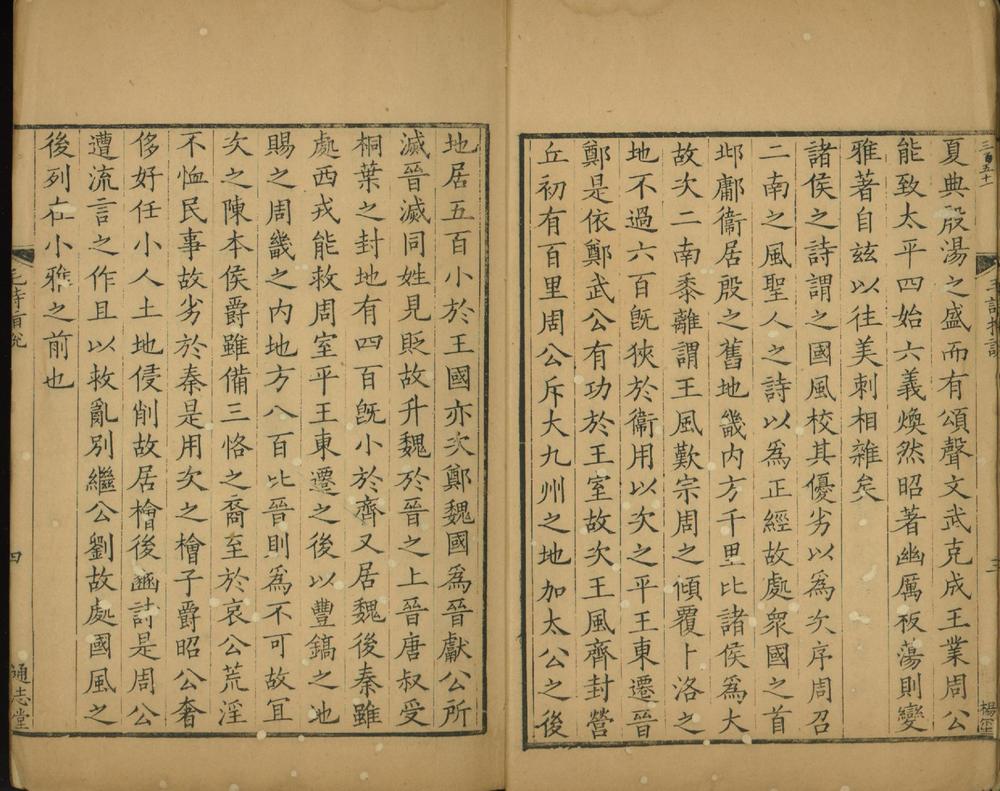 三百五十
毛詩指說
三
楊至
夏典殷湯之盛而有頌聲文武克成王業周公
能致太平四始六義煥然昭著幽厲板蕩則變
雅著自玆以往美刺相雜矣
諸侯之詩謂之國風校其優劣以爲次序周召
二南之風聖人之詩以爲正經故處衆國之首
邶鄘衞居殷之舊地畿內方千里比諸侯爲大
故次二南黍離謂王風歎宗周之傾覆卜洛之
地不過六百旣狹於衞用以次之平王東遷晉
鄭是依鄭武公有功於王室故次王風齊封營
丘初有百里周公斥大九州之地加太公之後
地居五百小於王國亦次鄭魏國爲晉獻公所
滅晉滅同姓見貶故升魏於晉之上晉唐叔受
桐葉之封地有四百旣小於齊又居魏後秦雖
處西戎能救周室平王東遷之後以豐鎬之地
賜之周畿之內地方八百比晉則爲不可故宜
次之陳本侯爵雖備三恪之裔至於哀公荒淫
不恤民事故劣於秦是用次之檜子爵昭公奢
侈好任小人土地侵削故居檜後豳詩是周公
遭流言之作且以救亂別繼公劉故處國風之
後列在小雅之前也
毛詩指說
四
通志堂